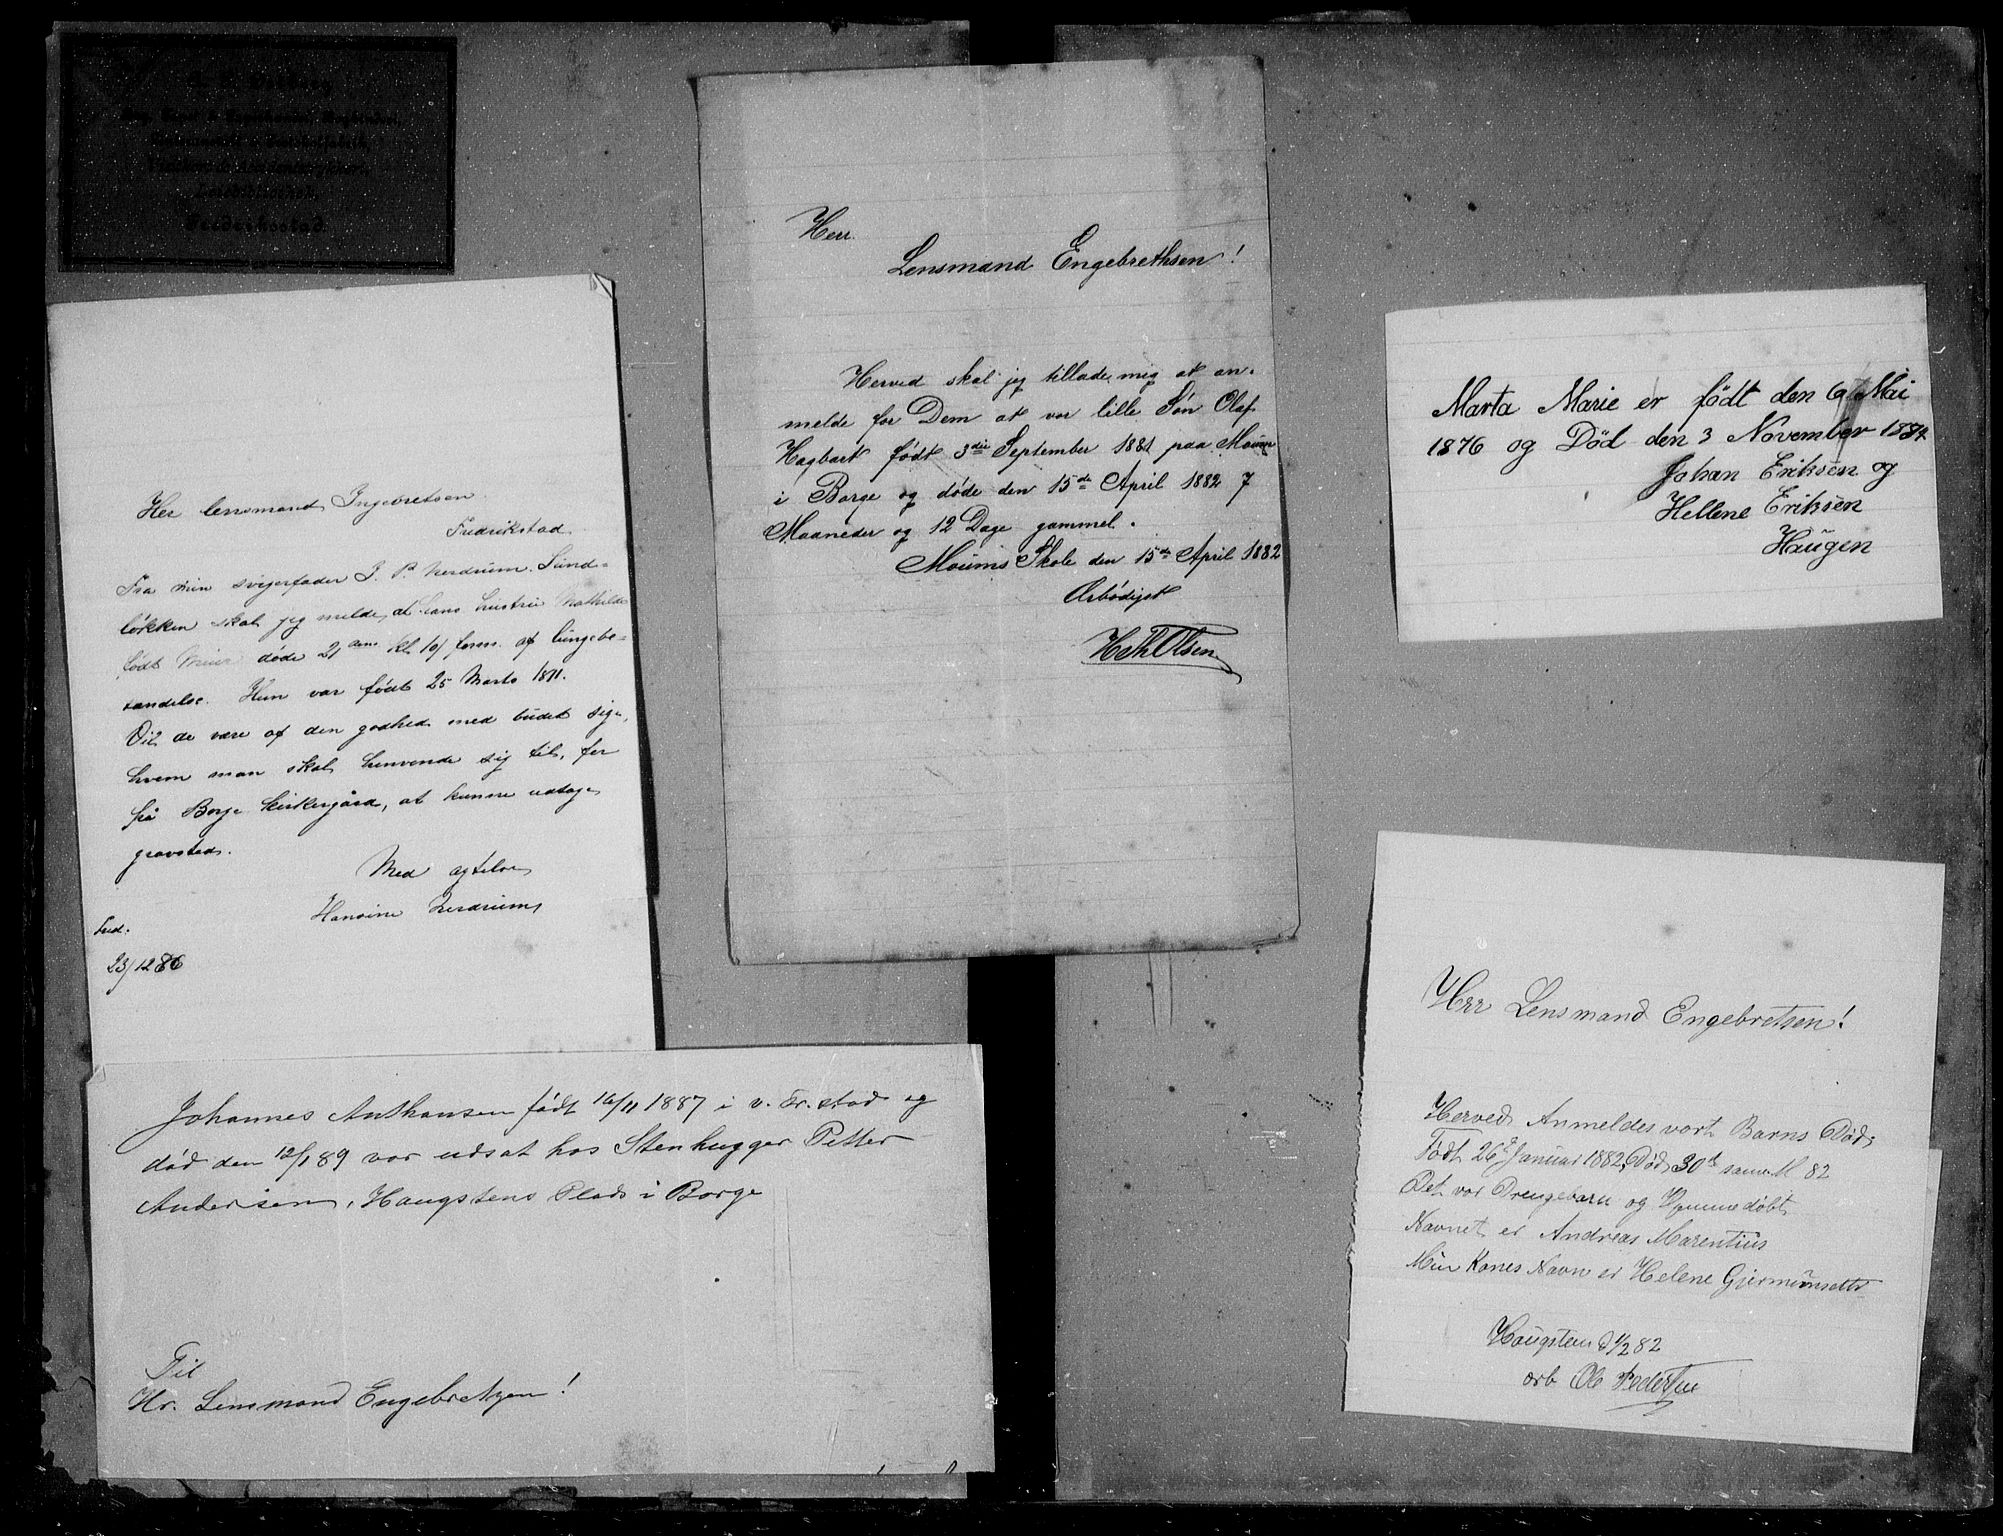 Fredrikstad.
Her lensmand Ingebretsen.
Fredrikstad
Fra min svigerfader J. P. Nerdrum. Sund=
løkken skal jeg melde, at hans hustru Mathilde
født døde 21 dens kl 10 form. af lungebe=
tændelse. Hun var født 25 Marts 1811.
Vil de være af den godhed med budet sige,
hvem man skal henvende sig til, for
på Borge kirkergård, at kunne udtage
gravsted.
Med agtelse
Nerdrum
23/12 86
Johannes Anthonsen født 16/11 1887 i v. Fr.stad og
død den 12/1 89 var udsat hos Stenhugger Petter
Andersen, Haugstens Plads i Borge
Til
Hr. Lensmand Engebretsen!
Herr.
Lensmand Engebrethsen!
Herved skal jeg tillade mig at an-
melde for Dem at vor lille Søn Olaf
Hagbart født 3die September 1881 paa Moum
i Borge og døde den 15de April 1882 7
Maaneder og 12 Dage gammel.
Moums Skole den 15de April 1882
Ærbødigst
H Th Olsen
Marta Marie er født den 6 Mai
1876 og Død den 3 November 1884
Johan Eriksen og
Hellene Eriksen
Haugen
Herr Lensmand Engebretsen!
Herved Anmeldes vort Barns Død,
Født 26d Januar 1882, Død 30d samme M 82
Det var Drengebarn og Hjemmedøbt
Navnet er Andreas Marentius
Min Kones Navn er Helene
Haugsten d 1/2 82
ærb Ole Pedersen